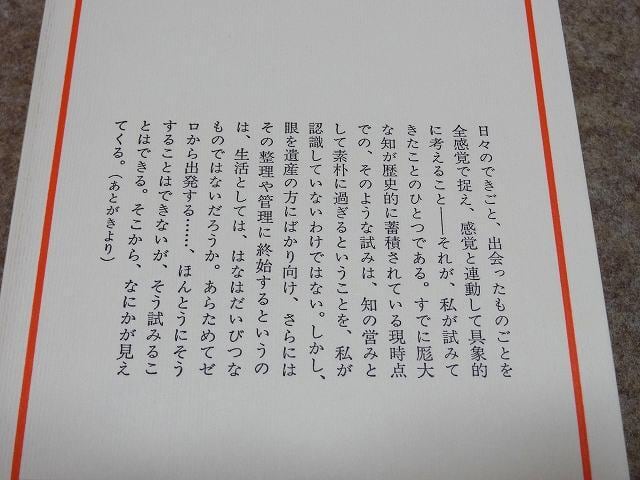 日々のできごと、出会ったものごとを
全感覚で捉え、感覚と連動して具象的
に考えること――それが、私が試みて
きたことのひとつである。すでに厖大
な知が歴史的に蓄積されている現時点
での、そのような試みは、知の営みと
して素朴に過ぎるということを、私が
認識していないわけではない。しかし、
眼を遺産の方にばかり向け、さらには
その整理や管理に終始するというの
は、生活としては、はなはだいびつな
ものではないだろうか。あらためてゼ
ロから出発する……、ほんとうにそう
することはできないが、そう試みるこ
とはできる。そこから、なにかが見え
てくる。（あとがきより）